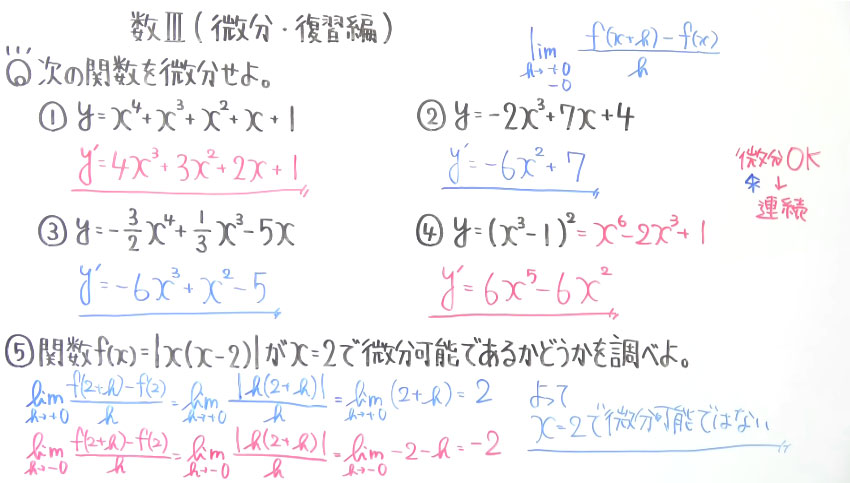 数Ⅲ(微分・復習編)
lim h→+0 -0 f(x+h)-f(x)/h
◎次の関数を微分せよ。
① y=x⁴+x³+x²+x+1
y'=4x³+3x²+2x+1
② y=-2x³+7x+4
y'=-6x²+7
微分OK
↓
連続
③ y=-3/2x⁴+1/3x³-5x
y'=-6x³+x²-5
④ y=(x³-1)²=x⁶-2x³+1
y'=6x⁵-6x²
⑤ 関数f(x)=|x(x-2)|がx=2で微分可能であるかどうかを調べよ。
lim h→+0 f(2+h)-f(2)/h = lim h→+0 |h(2+h)|/h = lim h→+0 (2+h)=2
lim h→-0 f(2+h)-f(2)/h = lim h→-0 |h(2+h)|/h = lim h→-0 -2-h=-2
よって
x=2で微分可能ではない